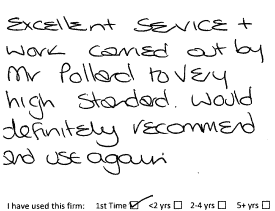 Excellent Service +
Work carried out by
Mr Pollard to very
high Standard. Would
definitely recommend
and use again
I have used this firm: 1st Time ☑ <2 yrs ☐ 2-4 yrs ☐ 5+ yrs ☐